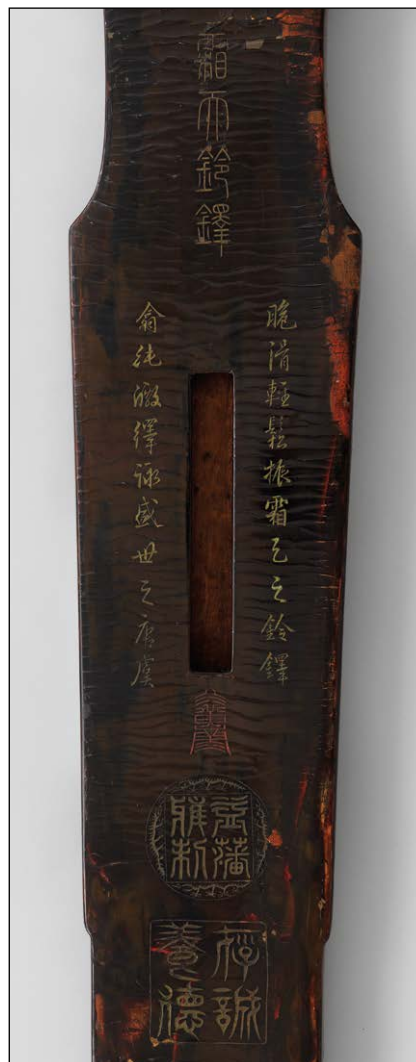 霜天鈴鐸
脆滑輕鬆振霜天之鈴鐸
翕純皦繹詠盛世之唐虞
益藩
雅制
存誠
養德